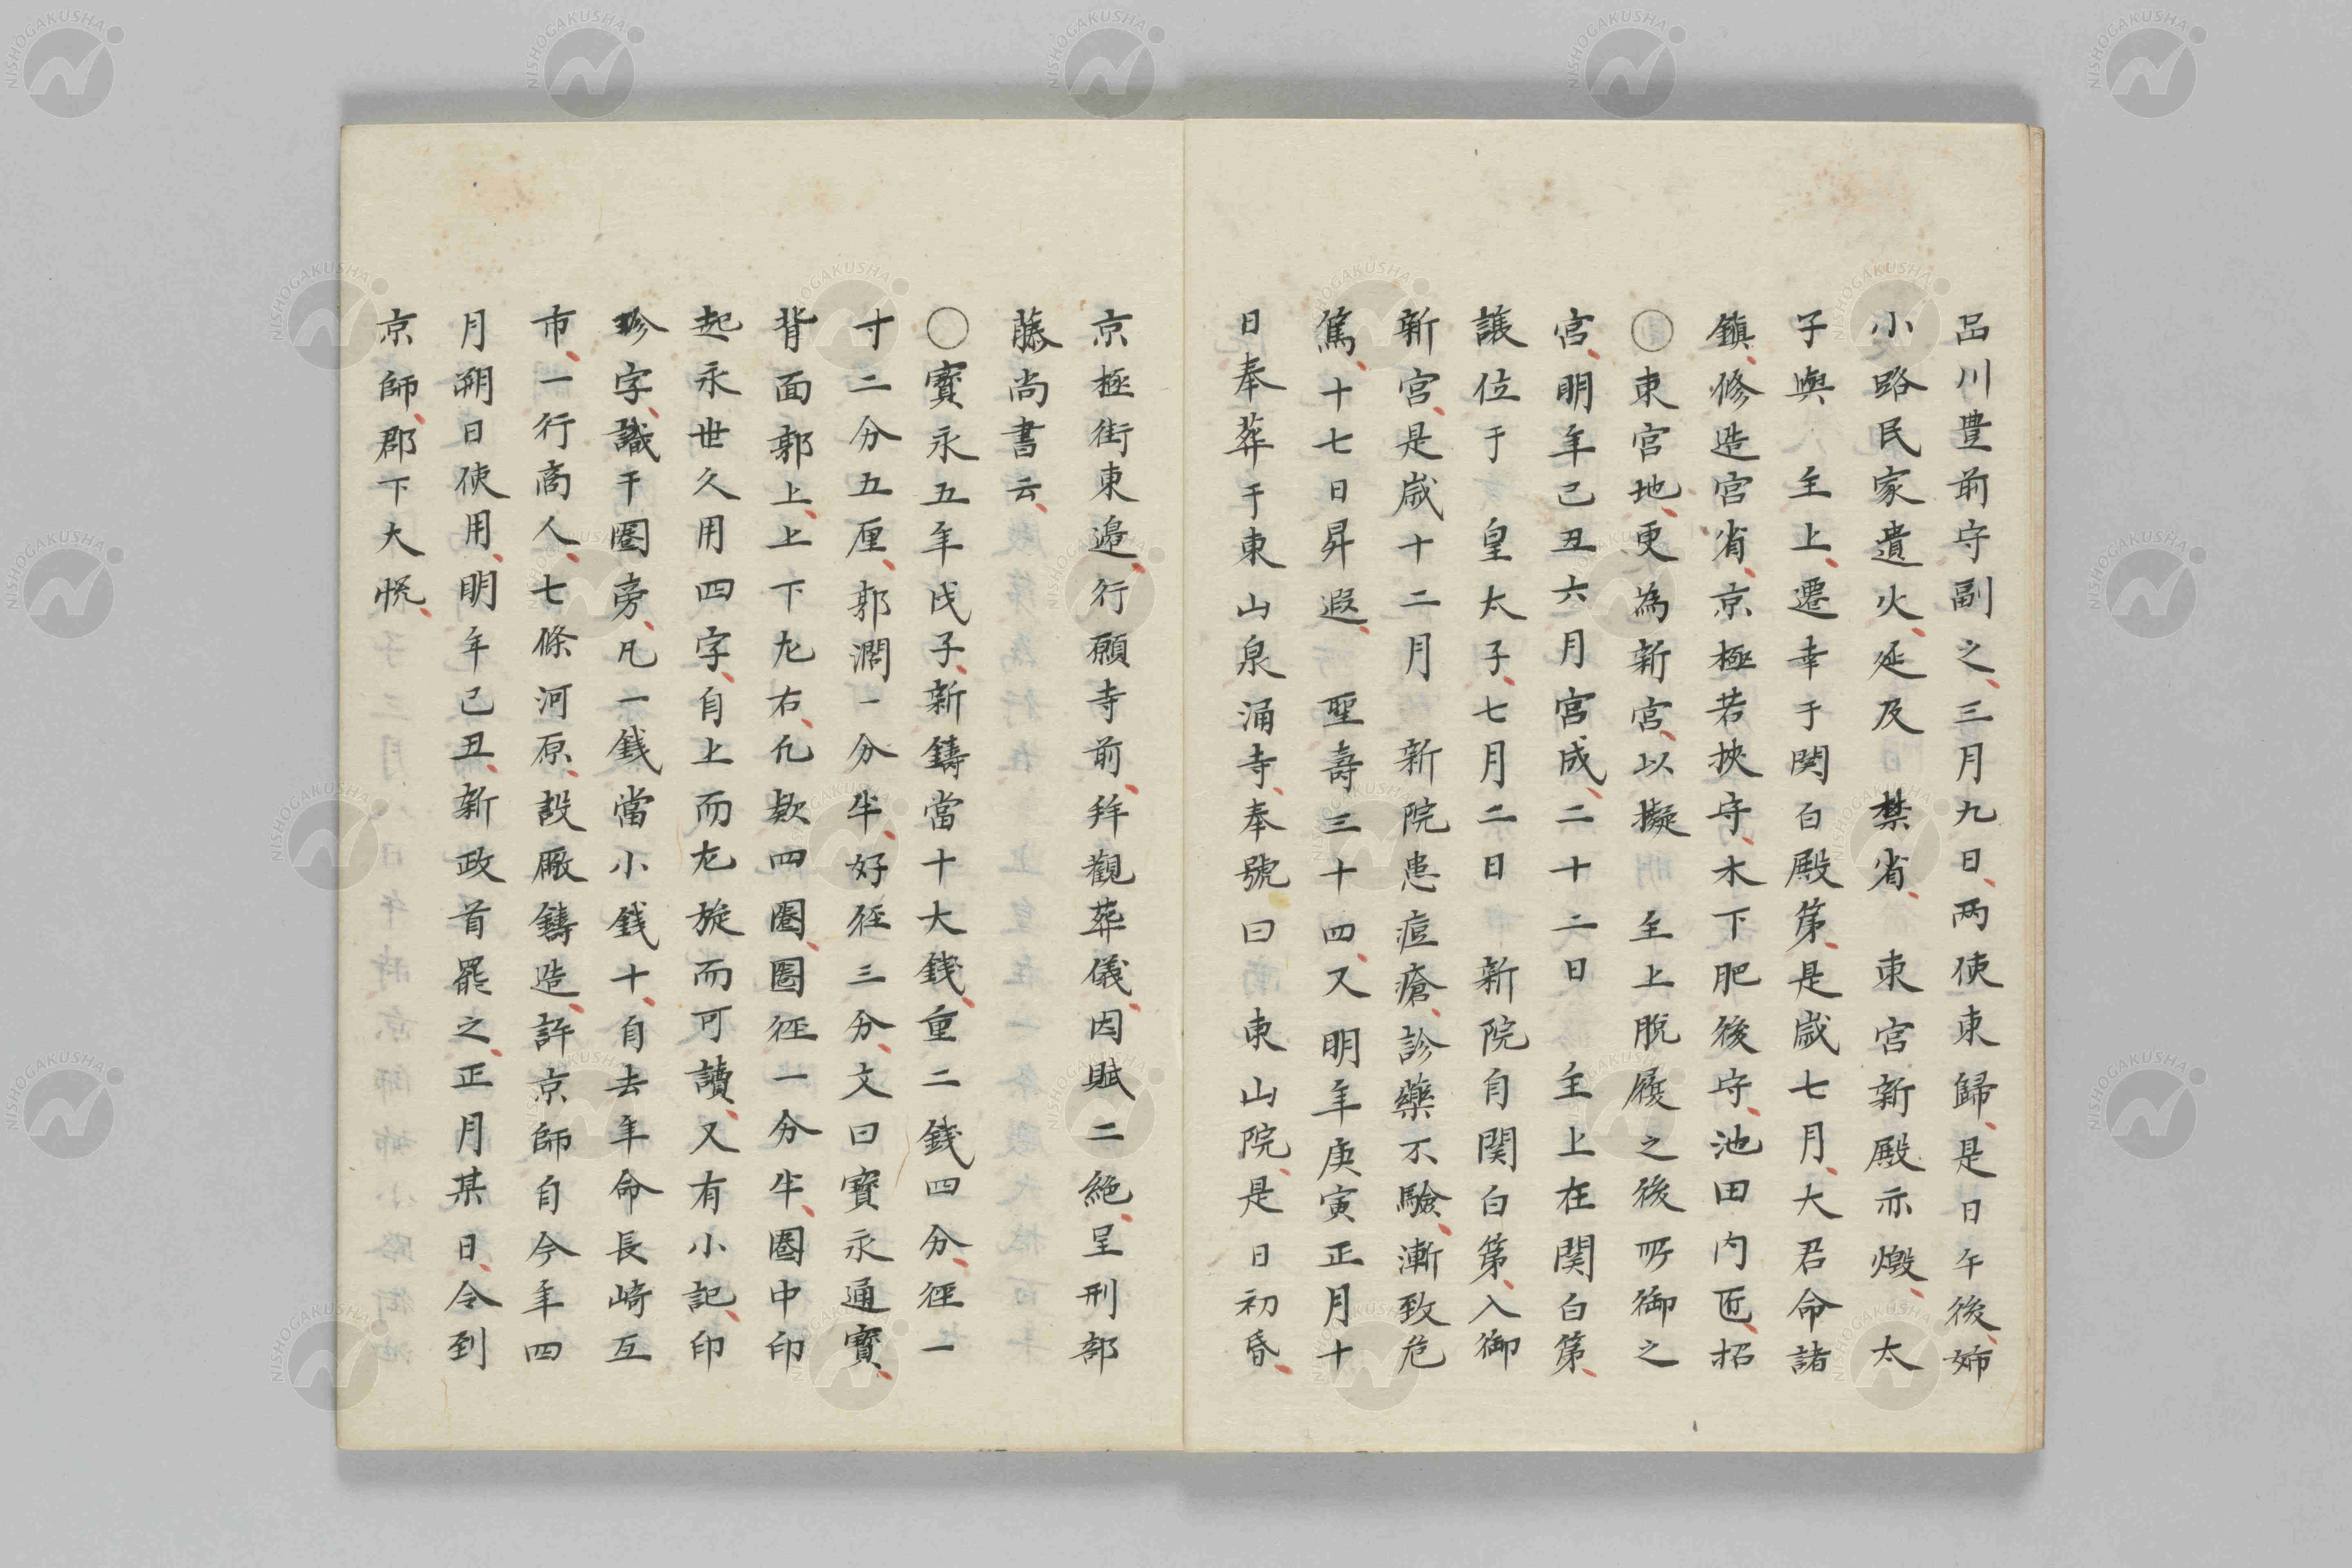 品川豊前守副之、三月九日、两使東歸、是日午後、姉
小路民家遺火、延及　禁省、東宮新殿亦燬、太
子與　主上、遷幸于関白殿第、是歳七月、大君命諸
鎮、修造宮省、京極若挾守、木下肥後守、池田内匠、招
〇東宮地、更為新宮、以擬　至上脫履之後所御之
宮、明年己丑六月宮成、二十二日　主上在関白第、
讓位于　皇太子、七月二日　新院自関白第、入御
新宮、是歳十二月　新院患痘瘡、診藥不驗、漸致危
篤、十七日昇遐、　聖壽三十四、又明年庚寅正月十
日奉葬于東山泉涌寺、奉號曰　東山院、是日初昏、
京極街東邉、行願寺前、拜觀葬儀、因賦二絶、呈刑部
藤尚書云、
〇寳永五年戊子、新鑄當十大錢、重二錢四分、徑一
寸二分五厘、郭濶一分半、好徑三分、文曰寳永通寳、
背面郭上、上下尢右、凢欵四圏、圏徑一分半、圏中印
起永世久用四字、自上而尢旋而可讀、又有小記、印
珍字、識于圏旁、凡一錢當小錢十、自去年命長崎互
市、一行商人、七條河原、設厰鑄造、許京師自今年四
月朔日使用、明年己丑、新政首罷之、正月某日、令到
京師、郡下大悦、